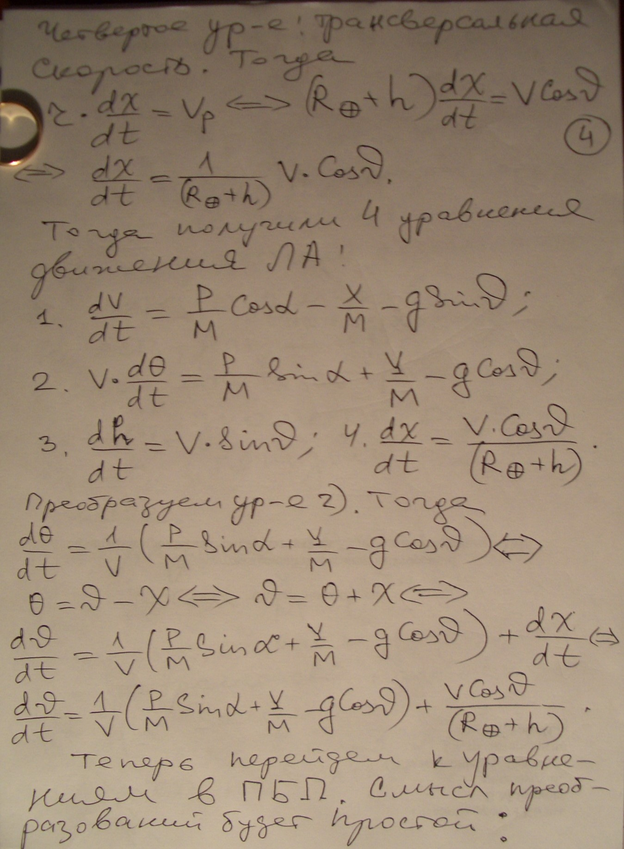 Четвертое ур-е: трансверсальная
скорость. Тогда
r · dx/dt = Vp <=> (R⊕ + h) dx/dt = V Cosϑ
④
<=> dx/dt = 1/(R⊕+h) V · Cosϑ.
Тогда получили 4 уравнения
движения ЛА:
1. dV/dt = P/M Cosα − X/M − g Sinϑ;
2. V · dθ/dt = P/M Sinα + Y/M − g Cosϑ;
3. dh/dt = V · Sinϑ; 4. dx/dt = V · Cosϑ/(R⊕+h).
Преобразуем ур-е 2). Тогда
dθ/dt = 1/V (P/M Sinα + Y/M − g Cosϑ) <=>
θ = ϑ − X <=> ϑ = θ + X <=>
dϑ/dt = 1/V (P/M Sinα + Y/M − g Cosϑ) + dx/dt <=>
dϑ/dt = 1/V (P/M Sinα + Y/M − g Cosϑ) + V Cosϑ/(R⊕+h).
Теперь перейдем к уравне-
ниям в ПБП. Смысл преоб-
разований будет простой: